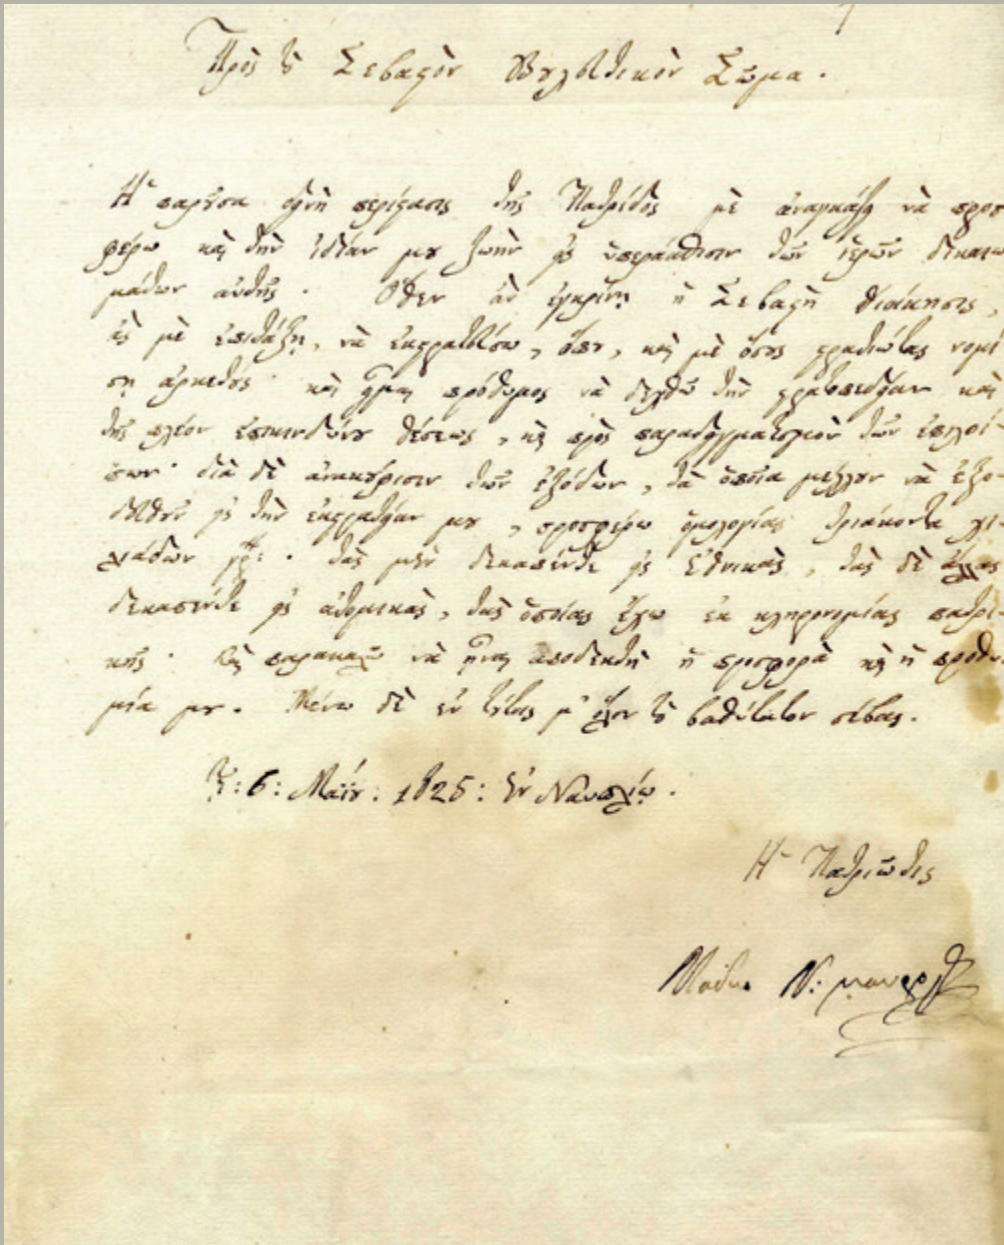 Πρὸς τὸ Σεβαστὸν Βουλευτικὸν Σῶμα.
Ἡ παροῦσα δεινὴ περίστασις τῆς Πατρίδος μὲ ἀναγκάζει νὰ προσ
φέρω καὶ τὴν ἰδίαν μου ζωὴν εἰς ὑπεράσπισιν τῶν ἱερῶν δικαιω
μάτων αὐτῆς. Ὅθεν ἂν ἐγκρίνῃ ἡ Σεβαστὴ Διοίκησις,
ἂς μὲ ἐπιτάξῃ, νὰ ἐκστρατεύσω, ὅπου, καὶ μὲ ὅσους στρατιώτας νομί
σῃ ἀρκετούς· καὶ εἶμαι πρόθυμος νὰ δεχθῶ τὴν στρατοπεδείαν καὶ
τῆς πλέον ἐπικινδύνου θέσεως, καὶ πρὸς παραδειγματισμὸν τῶν ἐπιλοί-
πων· διὰ δὲ ἀνακούφισιν τῶν ἐξόδων, τὰ ὁποῖα μέλλουν νὰ ἐξο-
δευθοῦν εἰς τὴν ἐκστρατείαν μου, προσφέρω ὁμολογίας τριάκοντα χι-
λιάδων γρ: . τὰς μὲν δεκαπέντε εἰς Ἐθνικὰς, τὰς δὲ ἄλλας
δεκαπέντε εἰς ἀτομικὰς, τὰς ὁποίας ἔχω ἐκ κληρονομίας πατρι-
κῆς· Καὶ παρακαλῶ νὰ εἶναι ἀποδεκτὴ ἡ προσφορὰ καὶ ἡ προθυ-
μία μου. Μένω δὲ ἐν τούτοις μ' ὅλον τὸ βαθύτατον σέβας.
Τῇ: 6: Μαΐου: 1825: Ἐν Ναυπλίῳ.
Ἡ Πατριῶτις
Ν: